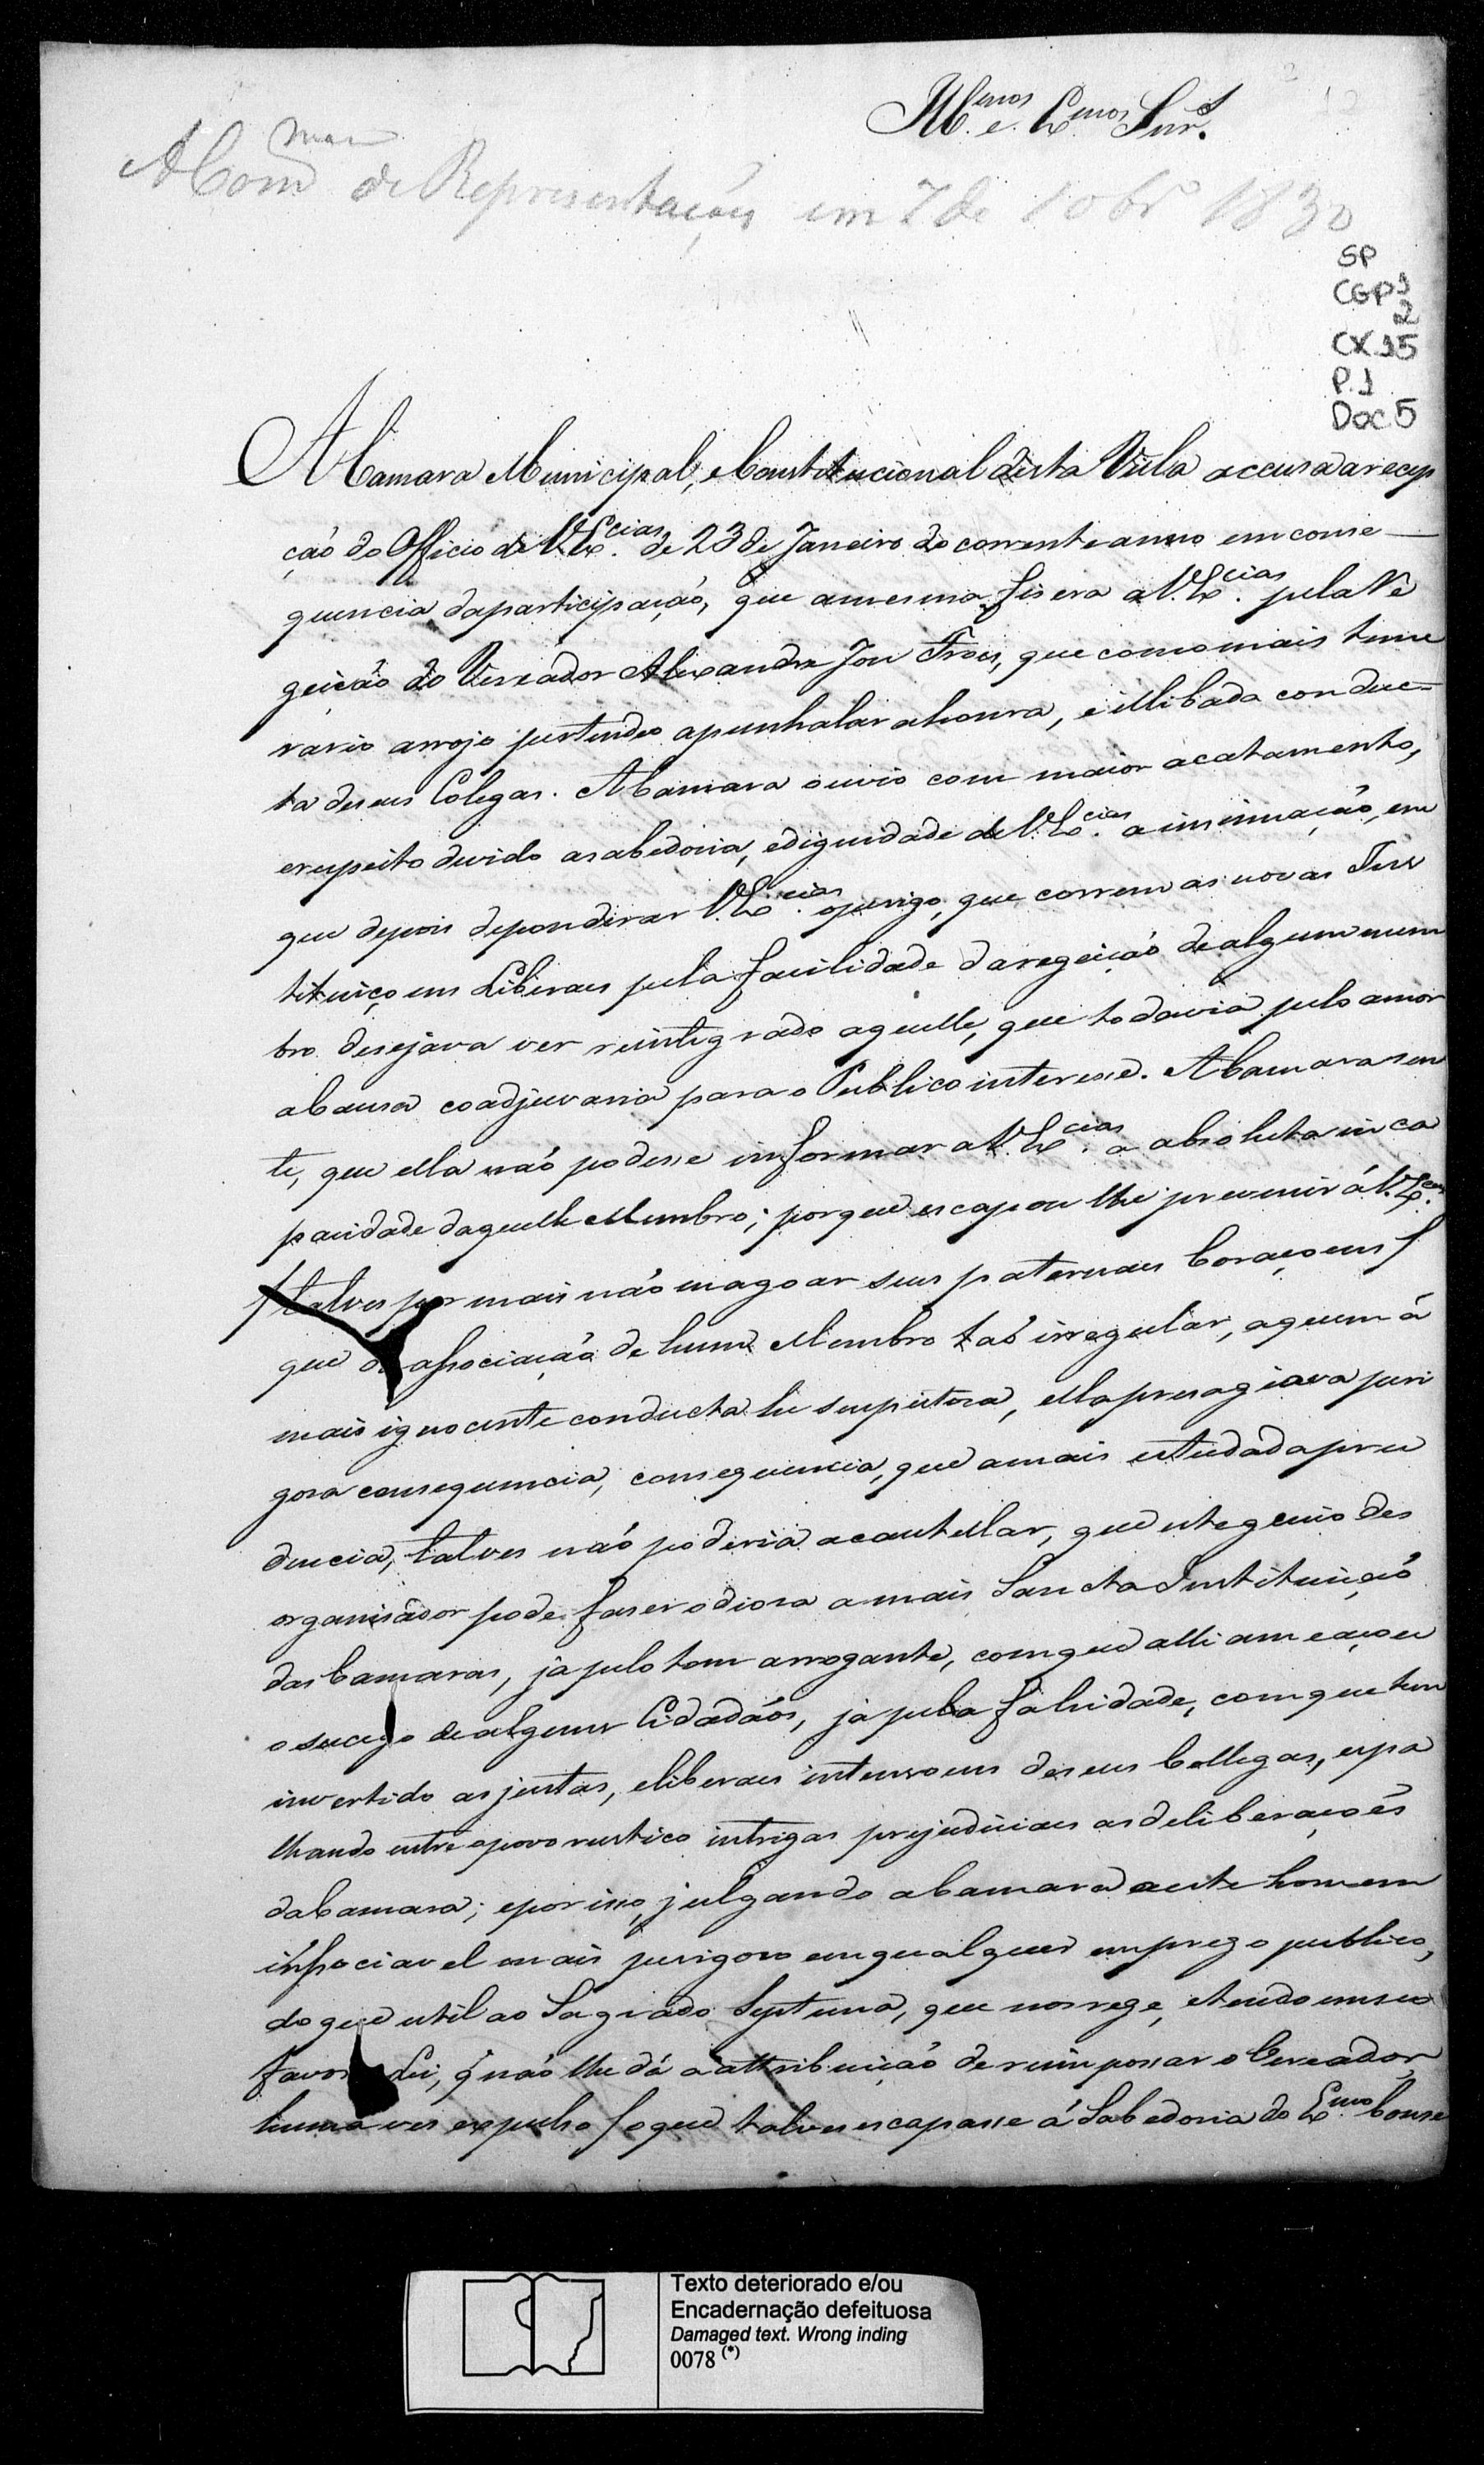 Ill.mos e Ex.mos Snr.s
A Com.mam de Representações em 7 de 10br.o 1830
SP
CGP1
2
CX.15
P.1
Doc 5
A Camara Municipal, e Constitucional desta Villa accusa a recep
ção do Officio de V.Ex.cias de 23 de Janeiro do corrente anno em conse
quencia da participação, que a mesma fisera a V.Ex.cias pela Re
geição do Vereador Alexandre Jose Froes, que como mais teme
rario arrojo pertendeo apunhalar a honra, e illibada conduc=
ta de seus Colegas. A Camara ouvio com maior acatamento,
e respeito devido a sabedoria, e dignidade de V.Ex.cias a insinuação, em
que depois de ponderar V.Ex.cias o perigo, que correm as novas Ins
tituiçoens Liberaes pela facilidade da regeição de algum mem
bro desejava ver reintegrado aquelle, que todavia pelo amor
a Causa coadjuvaria para o Publico interesse. A Camara sen
te, que ella não podesse informar a V.Ex.cias a absoluta inca
pacidade daquelle Membro; porque escapou lhe prevenir á V.Ex.cias
/talves por mais não magoar seus paternaes Coraçoens/
que da associação de hum Membro tão irregular, a quem á
mais ignocente conducta he suspeitosa, ella presagiava peri
gosa consequencia, consequencia, que a mais estudada pru
dencia, talves não poderia acautellar, que este genio des
organisador pode faser odiosa a mais Sancta Instituição
das Camaras, ja pelo tom arrogante, com que alli ameaçou
o sucego de alguns Cidadãos, ja pela falsidade, com que tem
invertido as justas, e liberaes intensoens de seus Collegas, espa
lhando entre o povo rustico intrigas prejudiciaes as deliberaçoẽs
da Camara; e por isso, julgando a Camara a este homem
inssociavel mais perigoso em qualquer emprego publico,
do que util ao Sagrado Systema, que nos rege, e tendo em seu
favor Lei, q não lhe dá a attribuição de reimpossar o Vereador
huma ves expulso /o que talves escapasse á Sabedoria do Ex.mo Conse
Texto deteriorado e/ou
Encadernação defeituosa
Damaged text. Wrong inding
0078 (*)